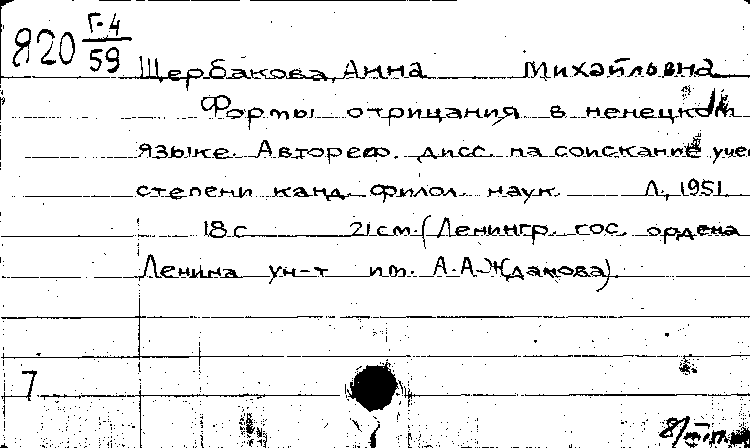 Я20 Г-4/59
Щербакова, Анна Михайловна
Формы отрицания в ненецком
языке. Автореф. дисс. на соискание учен
степени канд. филол. наук. Л., 1951.
18 с 21 см. (Ленингр. гос. ордена
Ленина ун-т им. А.А. Жданова).
7